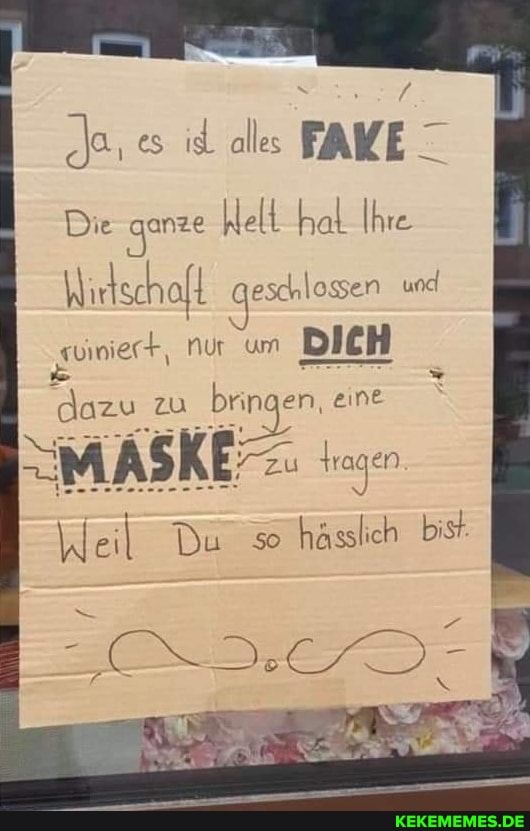 Ja, es ist alles FAKE
Die ganze Welt hat Ihre
Wirtschaft geschlossen und
ruiniert, nur um DICH
dazu zu bringen, eine
MASKE zu tragen.
Weil Du so hässlich bist.
KEKEMEMES.DE